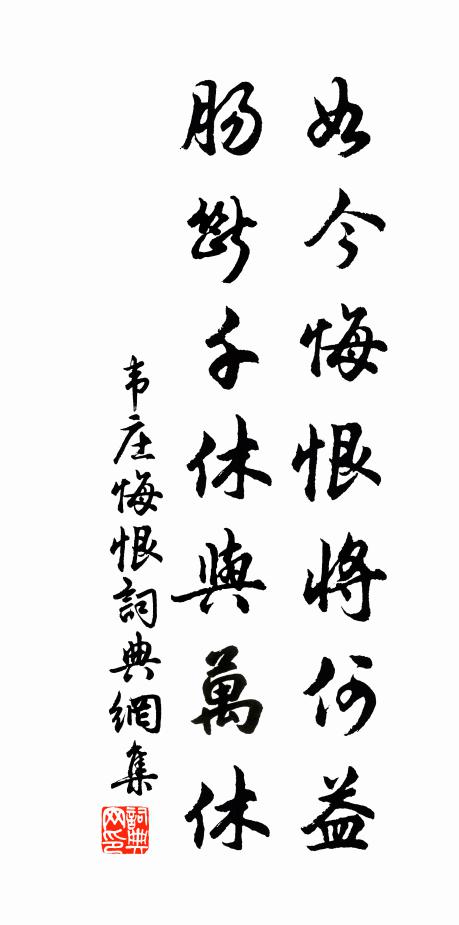 如今悔恨將何益
腸斷千休與萬休
韦庄悔恨詞典網集
詞典
网印